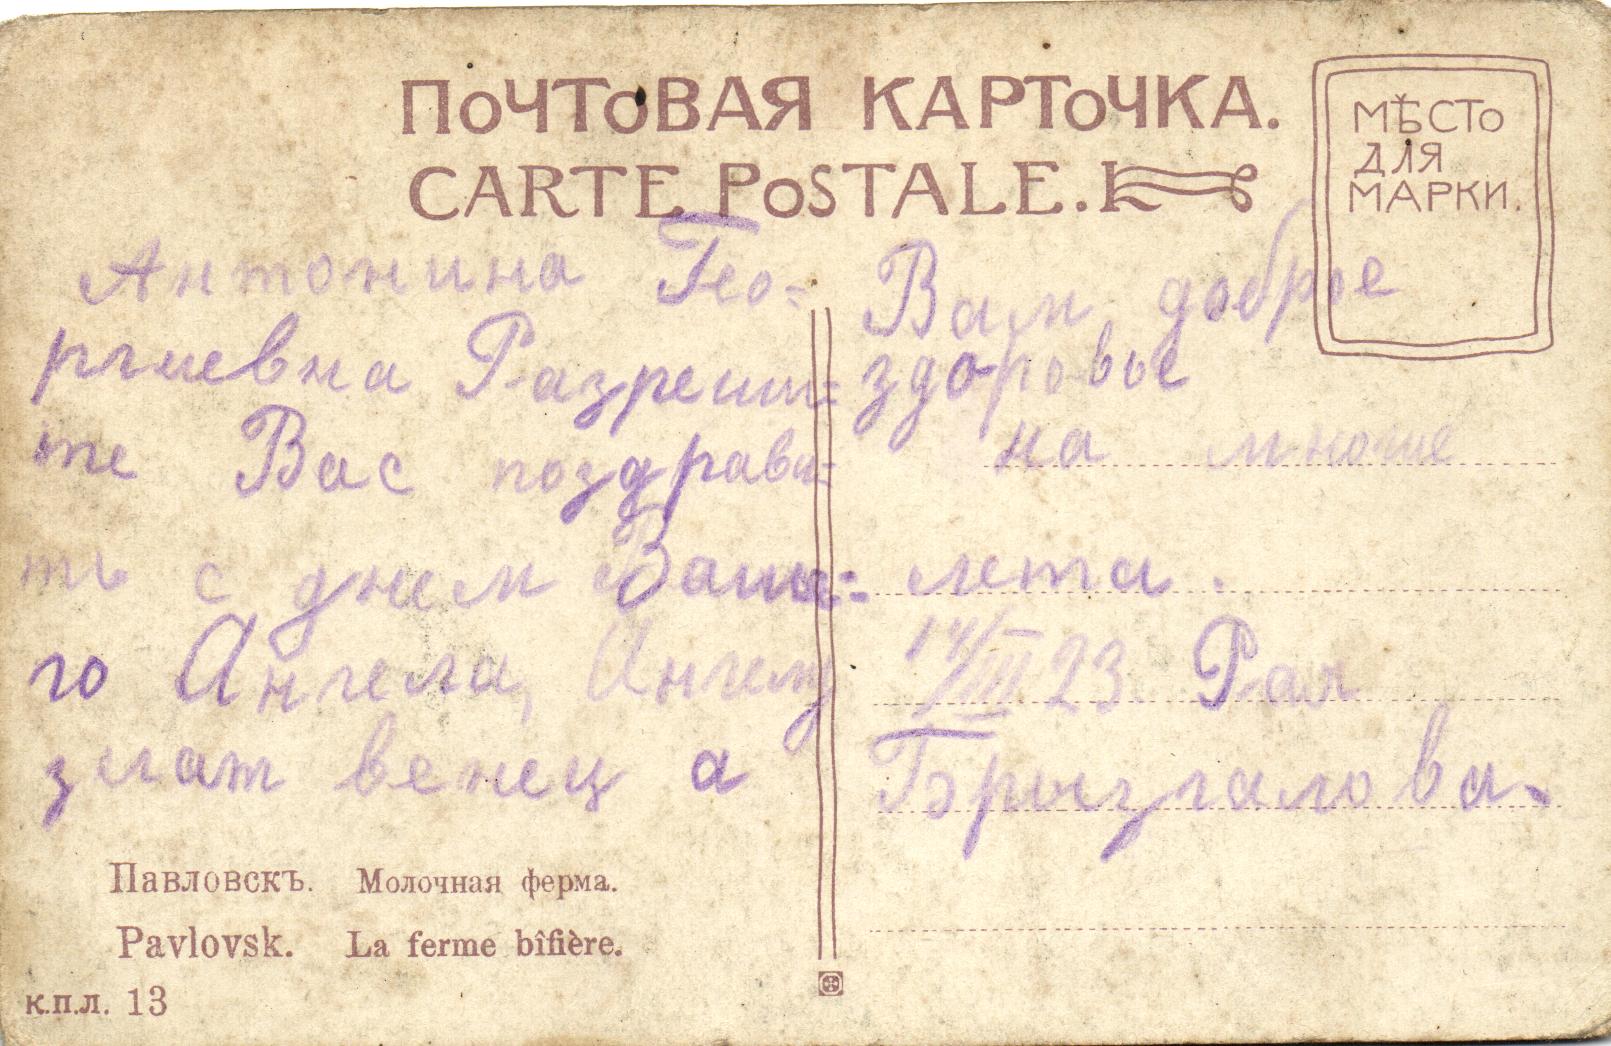 ПОЧТОВАЯ КАРТОЧКА.
CARTE POSTALE.
МѢСТО
ДЛЯ
МАРКИ.
Антонина Гео-
ргиевна Разреши=
те Вас поздрави=
ть с днем Ваше=
го Ангела, Ангелу
злат венец а
Вам доброе
здоровье
на многие
лета.
14/III 23 Рая
Брызгалова.
Павловскъ. Молочная ферма.
Pavlovsk. La ferme bîfière.
К.П.Л. 13